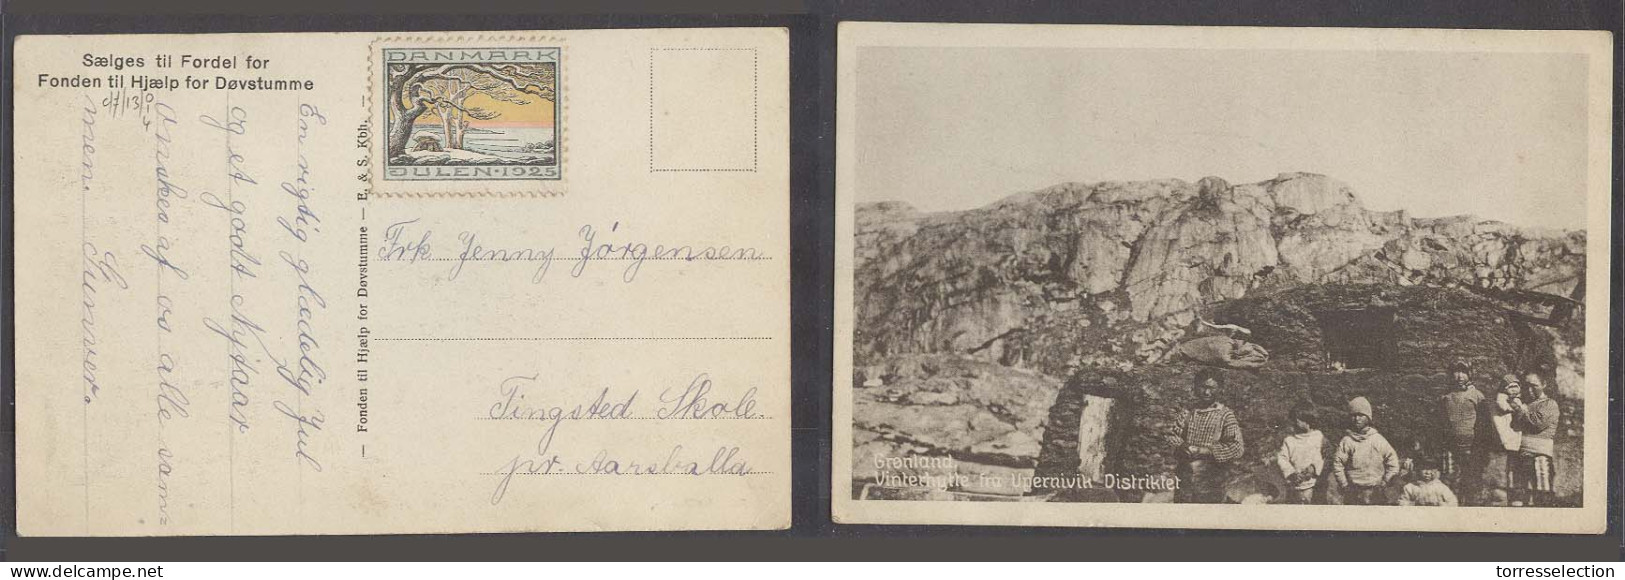 Sælges til Fordel for
Fonden til Hjælp for Døvstumme
En rigtig glædelig Jul
og et godt Nytaar
ønskes af os alle sam=
men. Gunver.
— Fonden til Hjælp for Døvstumme — E. & S. Kbh. —
DANMARK
JULEN·1925
Frk Jenny Jörgensen
Tingsted Skole.
pr. Aarsballa
Grønland.
Vinterhytte fra Upernivik Distriktet
delcampe.net
torresselection